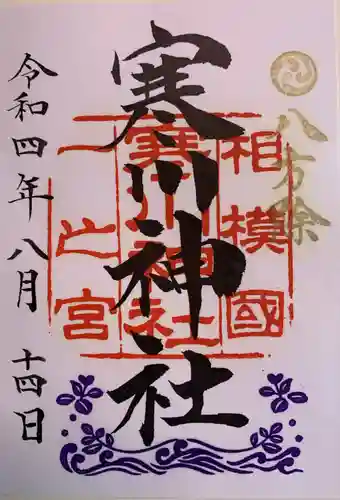 八方除
相模國
寒川神社
一之宮
寒川神社
令和四年八月 十四日